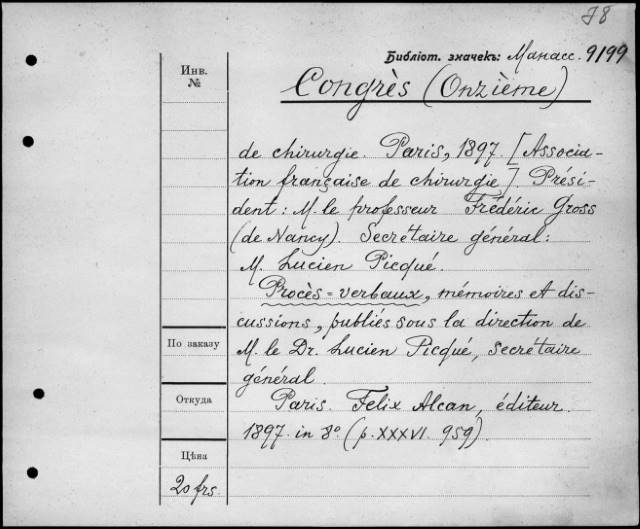 78
Библіот. значекъ: Манасс. 9199
Инв.
№
Congrès (Onzième)
de chirurgie. Paris, 1897. [Associa-
tion française de chirurgie]. Prési-
dent: M. le professeur Frédéric Gross
(de Nancy). Secrétaire général:
M. Lucien Picqué.
Procès-verbaux, mémoires et dis-
cussions, publiés sous la direction de
По заказу
M. le Dr. Lucien Picqué, secrétaire
général.
Откуда
Paris. Felix Alcan, éditeur.
1897. in 8º (p. XXXVI. 959).
Цѣна
20 frs.